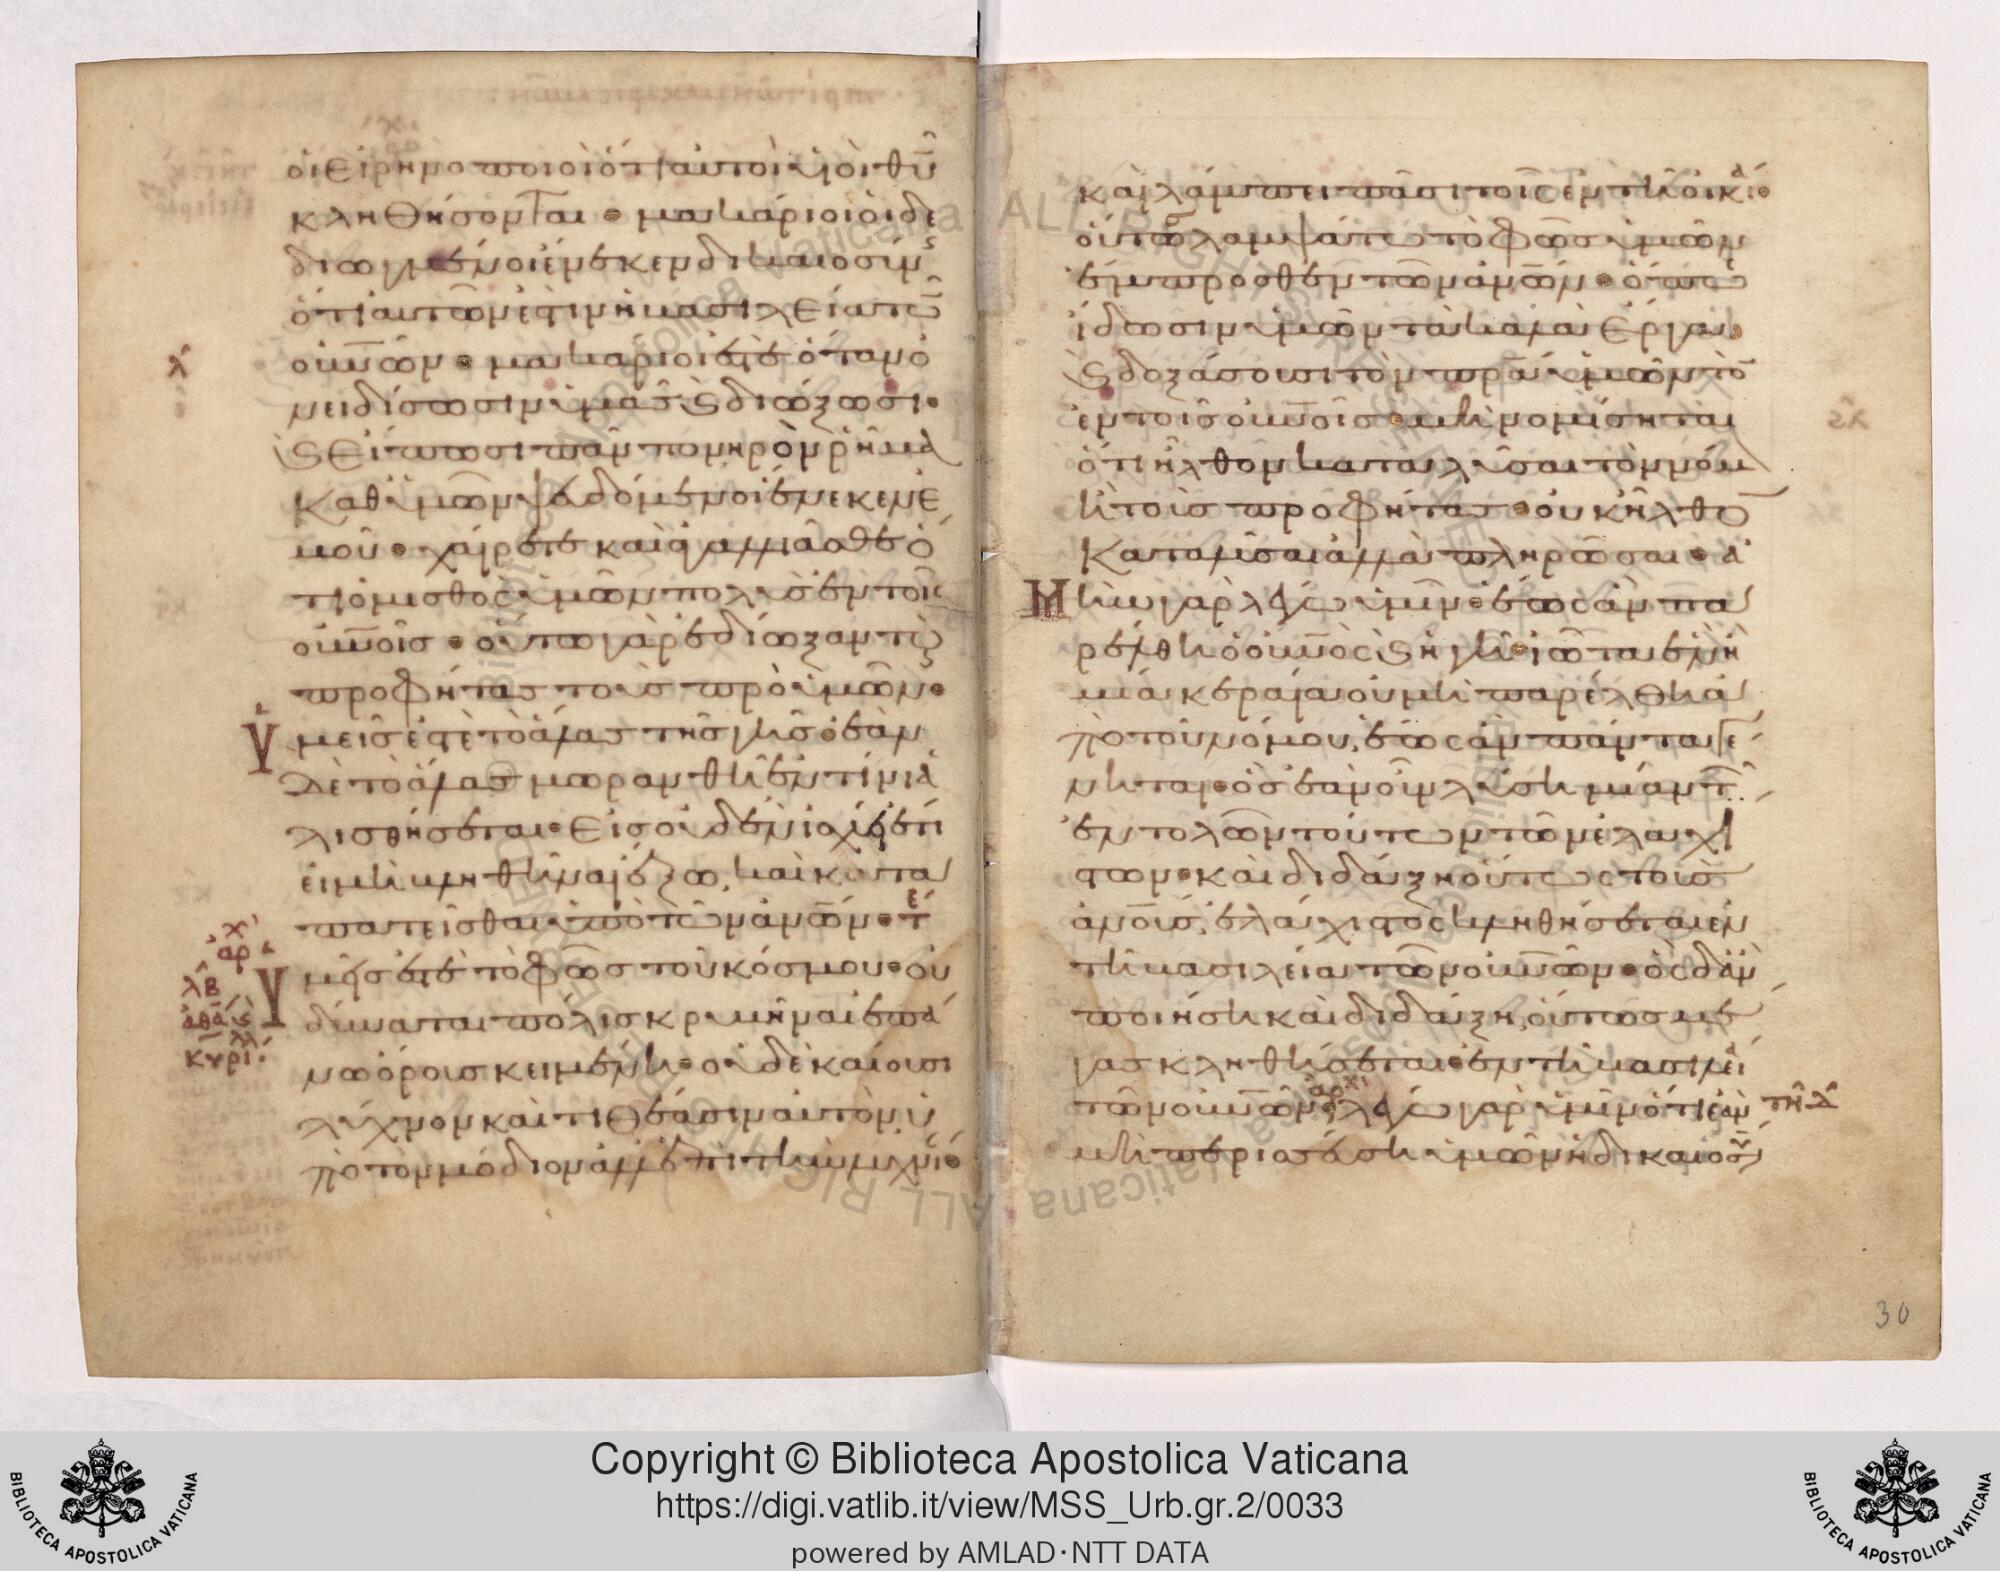 οἱ εἰρηνοποιοὶ ὅτι αὐτοὶ υἱοὶ θυ
κληθήσονται · μακάριοι οἱ δε
διωγμένοι ἕνεκεν δικαιοσύν
ὅτι αὐτῶν ἐστιν ἡ βασιλεία τῶ
οὐνῶν · μακάριοι ἐστὲ ὅταν ὀ
νειδίσωσιν ὑμᾶς ϗ διώξωσι ·
ϗ εἴπωσι πᾶν πονηρὸν ῥῆμα
καθ ὑμῶν ψεδόμενοι ἕνεκεν ἐ
μοῦ · χαίρετε καὶ ἀγαλλιᾶσθε ὅ
τι ὁ μισθὸς ὑμῶν πολὺς ἐν τοῖς
οὐνοῖς · οὕτω γὰρ ἐδίωξαν τοὺς
προφήτας τοὺς πρὸ ὑμῶν ·
Ὑμεῖς ἐστὲ τὸ ἅλας τῆς γῆς · ἐὰν
δὲ τὸ ἅλας μωρανθῆ ἐν τίνι ἁ
λισθήσεται · εἰς οὐδὲν ἰσχύει ἔτι
εἰ μὴ βληθῆναι ἔξω, καὶ κατα
πατεῖσθαι ὑπὸ τῶν ἀνῶν ·
Ὑμεῖς ἐστὲ τὸ φῶς τοῦ κόσμου · οὐ
δύναται πόλις κρυβῆναι ἐπά
νω ὄρους κειμένη · οὐδὲ καίουσι
λύχνον καὶ τιθέασιν αὐτὸν ὑ
πὸ τὸν μόδιον ἀλλ ἐπὶ τὴν λυχνί ·
λ
χ
αρ
λβ
κυρι
καὶ λάμπει πᾶσι τοῖς ἐν τῆ οἰκία ·
οὕτω λαμψάτω τὸ φῶς ὑμῶν
ἔμπροσθεν τῶν ἀνῶν · ὅπως
ἴδωσιν ὑμῶν τὰ καλὰ ἔργα
ϗ δοξάσουσι τὸν πρα ὑμῶν τὸ
ἐν τοῖς οὐνοῖς · μὴ νομίσηται
ὅτι ἦλθον καταλῦσαι τὸν νόμ
ἢ τοὺς προφήτας · οὐκ ἦλθο
καταλῦσαι ἀλλὰ πληρῶσαι · ἀ
Μὴν γὰρ λέγω ὑμῖν · ἕως ἂν πα
ρέλθη ὁ οὐνὸς ϗ ἡ γῆ · ἰῶτα ἓν ἢ
μία κεραία οὐ μὴ παρέλθη ἀ
πὸ τοῦ νόμου, ἕως ἂν πάντα γέ
νηται · ὃς ἐὰν οὖν λύση μίαν τ
ἐντολῶν τούτων τῶν ἐλαχί
στων · καὶ διδάξη οὕτως τοὺς
ἀνους, ἐλάχιστος κληθήσεται ἐν
τῆ βασιλεία τῶν οὐνῶν · ὃς δ ἂν
ποιήση καὶ διδάξη, οὗτος μέ
γας κληθήσεται · ἐν τῆ βασιλεί
τῶν οὐνῶν · λέγω γὰρ ὑμῖν ὅτι ἐὰν
μὴ περισσεύση ὑμῶν ἡ δικαιοσύ
αρχ
τῆ δ
30
Copyright © Biblioteca Apostolica Vaticana
https://digi.vatlib.it/view/MSS_Urb.gr.2/0033
powered by AMLAD·NTT DATA
BIBLIOTECA APOSTOLICA VATICANA
BIBLIOTECA APOSTOLICA VATICANA